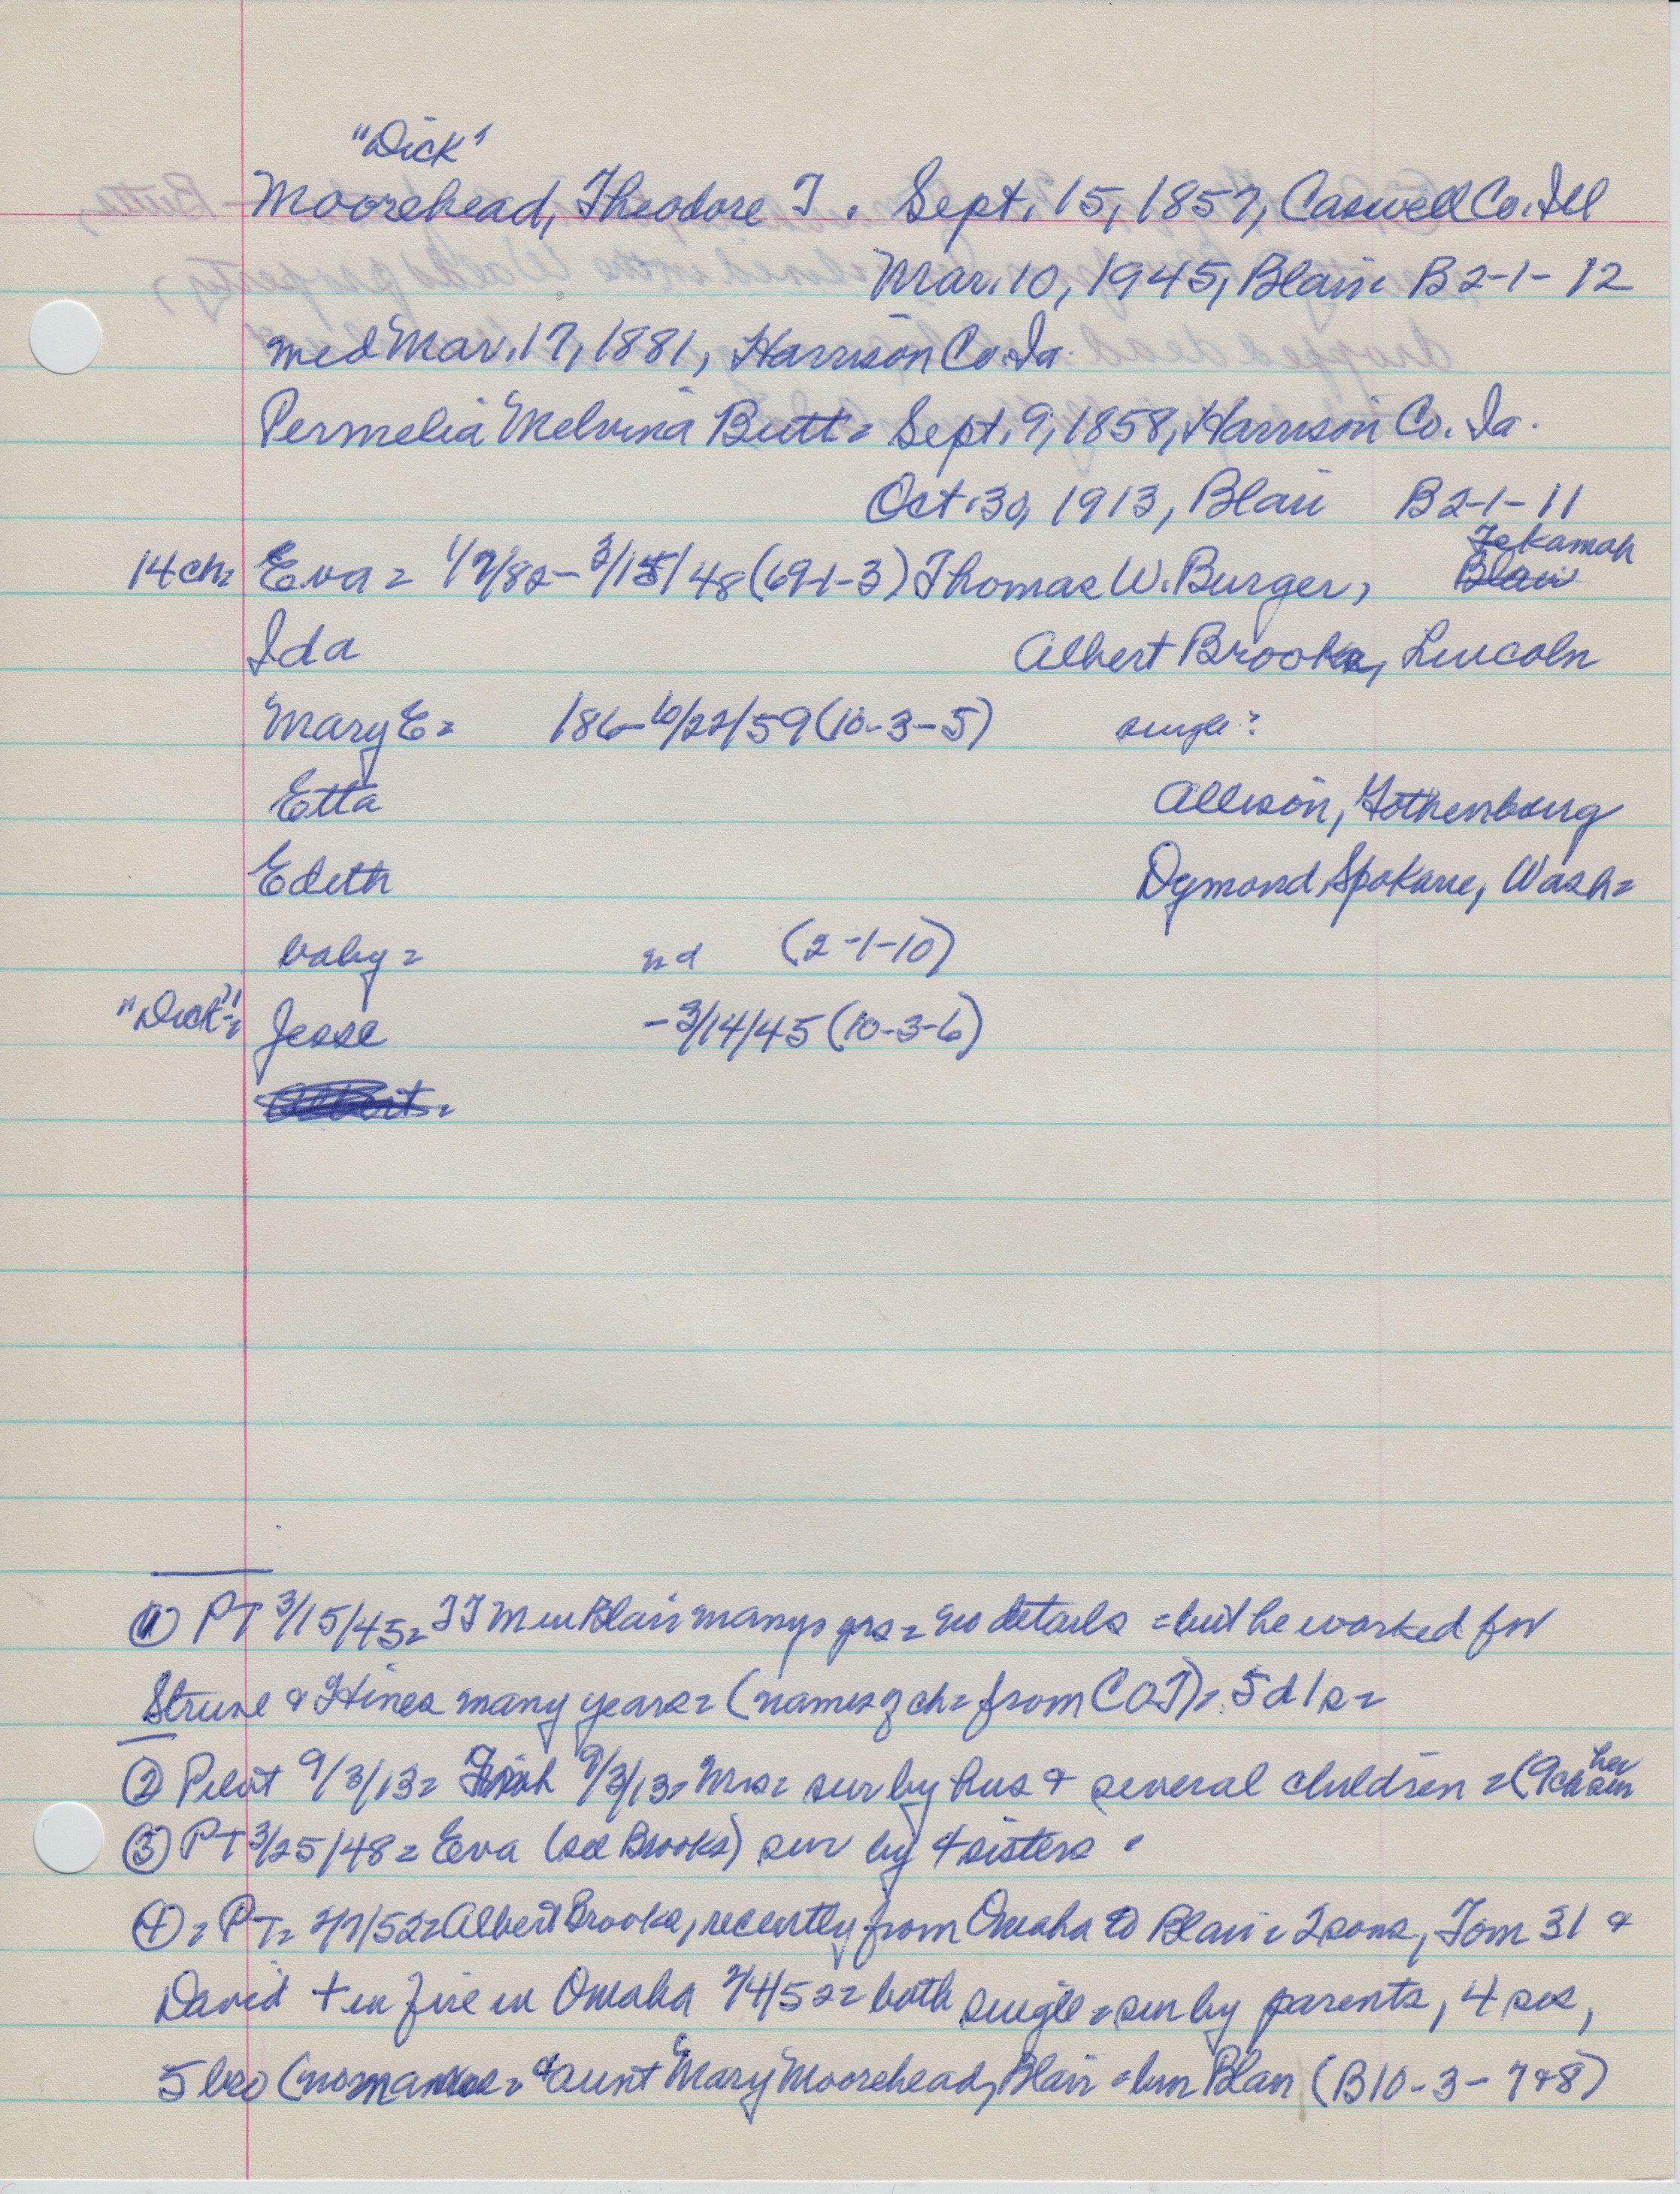 "Dick"
Moorehead, Theodore T. Sept. 15, 1857, Caswell Co. Ill
Mar. 10, 1945, Blair B 2-1-12
med Mar. 17, 1881, Harrison Co. Ia.
Permelia Melvina Butt = Sept. 9, 1858, Harrison Co. Ia.
Oct. 30, 1913, Blair B 2-1-11
Tekamah
14 ch = Eva = 1/7/82 - 3/15/48 (69-1-3) Thomas W. Burger, Blair
Ida Albert Brooks, Lincoln
Mary E = 186 - 10/22/59 (10-3-5) single?
Etta Allison, Gothenburg
Edith Dymond Spokane, Wash =
baby = nd (2-1-10)
"Dick" = Jesse - 3/14/45 (10-3-6)
Albert =
(1) PT 3/15/45 = TTM in Blair many yrs = no details = but he worked for
Struve & Hines many years = (names of ch = from COT) = 5 d 1 s =
her
(2) Pilot 9/3/13 = 9/3/13 = Mrs = sur by hus & several children = (9 ch sur
(3) PT 3/25/48 = Eva (see Brooks) sur by 4 sisters
(4) = PT = 2/7/52 = Albert Brooks, recently from Omaha to Blair = 2 sons, Tom 31 &
David + in fire in Omaha 2/4/52 = both single = sur by parents, 4 sis,
5 bro (no names = & aunt Mary Moorehead, Blair = bur Blair (B 10-3-7 & 8)